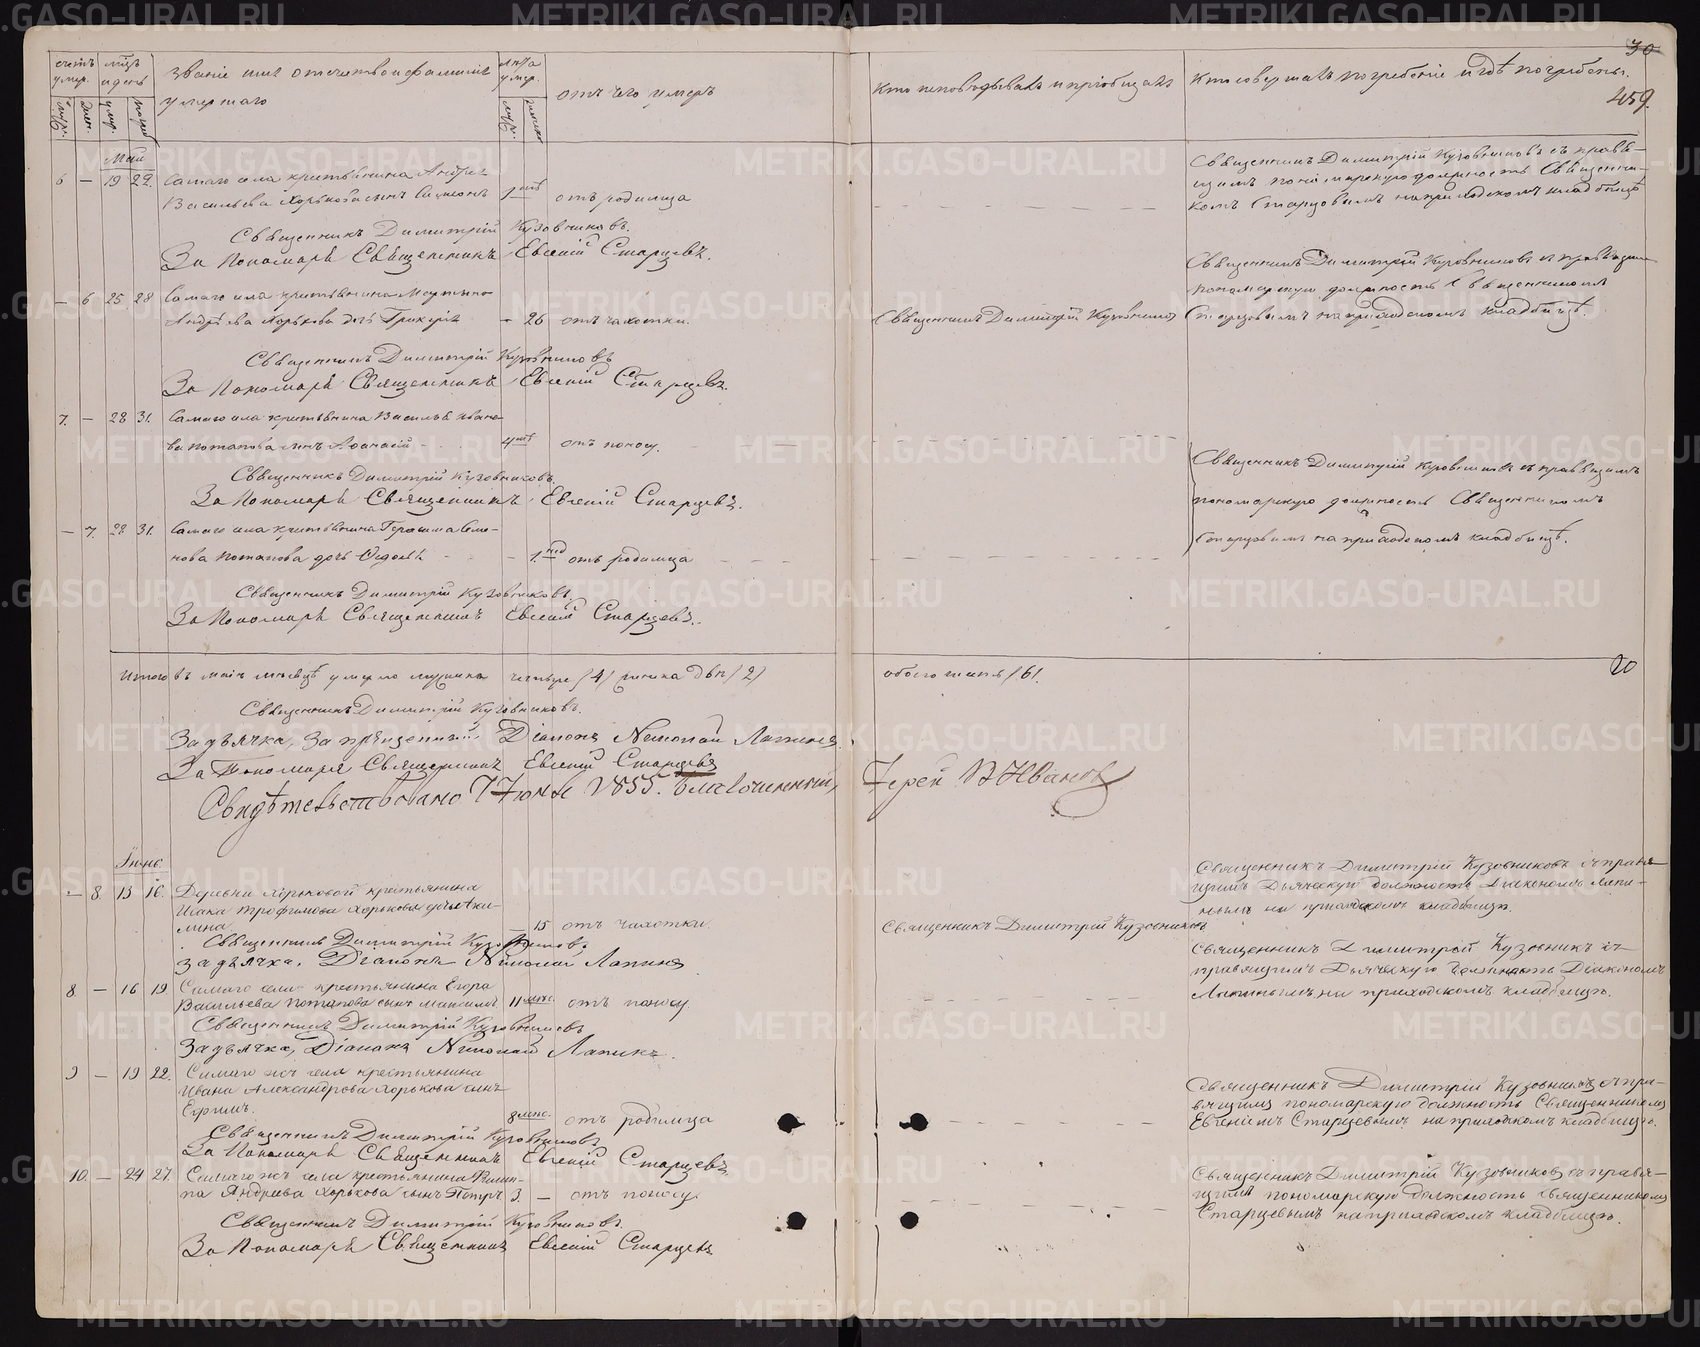 METRIKI.GASO-URAL.RU
30
459.
счетъ умер. мѣц. и день
Званіе имя отечество и фамилія умершаго
лѣта умер.
отъ чего умеръ
кто исповѣдывалъ и пріобщалъ
Кто совершалъ погребеніе и гдѣ погребены.
Май
6 — 19 22. Самаго села крестьянина Андрея
Васильева Хорькова сынъ Симеонъ 1 отъ родимца
Священникъ Димитрій Кузовниковъ съ правя-
щимъ пономарскую должность Священни-
комъ Старцовымъ на приходскомъ кладбищѣ
Священникъ Димитрій Кузовниковъ.
За Пономаря Священникъ Евгеній Старцевъ.
— 6 25 28 Самаго села крестьянина Мартина
Андреева Хорькова дочь Гликерія — 26 отъ чахотки.
Священникъ Димитрій Кузовниковъ
Священникъ Димитрій Кузовниковъ съ правящимъ
пономарскую должность Священникомъ
Старцовымъ на приходскомъ кладбищѣ.
Священникъ Димитрій Кузовниковъ
За Пономаря Священникъ Евгеній Старцевъ.
7. — 28 31. Самаго села крестьянина Василья Ивано-
ва Потапова сынъ Афанасій 4 отъ поносу.
Священникъ Димитрій Кузовниковъ.
За Пономаря Священникъ Евгеній Старцевъ.
Священникъ Димитрій Кузовниковъ съ правящимъ
пономарскую должность Священникомъ
Старцовымъ на приходскомъ кладбищѣ.
— 7. 28 31. Самаго села крестьянина Герасима Семе-
нова Потапова дочь — 1. нед отъ родимца
Священникъ Димитрій Кузовниковъ.
За Пономаря Священникъ Евгеній Старцевъ.
Итого въ маіѣ мѣсяцѣ умерло мужска четыре (4) женска двѣ (2) обоего пола (6).
20
Священникъ Димитрій Кузовниковъ.
За дьячка, Діаконъ Николай Лапинъ.
За Пономаря Священникъ Евгеній Старцевъ
Свидѣтельствовано 7 Іюня 1855. Благочинный, Іерей Ивановъ
Іюнь.
— 8. 13 16. Деревни Хорьковой крестьянина
Исака Трофимова Хорькова дочь
— 15 отъ чахотки.
Священникъ Димитрій Кузовниковъ
Священникъ Димитрій Кузовниковъ съ правя-
щимъ Дьяческую должность Діакономъ Лапи-
нымъ на приходскомъ кладбищѣ.
Священникъ Димитрій Кузовниковъ
За дьячка, Діаконъ Николай Лапинъ
8 — 16 19. Самаго села крестьянина Егора
Васильева Потапова сынъ 11 мѣс. отъ поносу.
Священникъ Димитрій Кузовниковъ съ
правящимъ Дьяческую должность Діакономъ
Лапинымъ на приходскомъ кладбищѣ.
Священникъ Димитрій Кузовниковъ
За дьячка, Діаконъ Николай Лапинъ.
9 — 19 22. Самаго же села крестьянина
Ивана Александрова Хорькова сынъ
Ефимъ. 8 мѣс. отъ родимца
Священникъ Димитрій Кузовниковъ съ пра-
вящимъ пономарскую должность Священникомъ
Евгеніемъ Старцевымъ на приходскомъ кладбищѣ.
Священникъ Димитрій Кузовниковъ
За Пономаря Священникъ Евгеній Старцевъ
10. — 24 27. Самаго же села крестьянина Филип-
па Андреева Хорькова сынъ Петръ 3. — отъ поносу.
Священникъ Димитрій Кузовниковъ съ правя-
щимъ пономарскую должность священникомъ
Старцевымъ на приходскомъ кладбищѣ.
Священникъ Димитрій Кузовниковъ.
За Пономаря Священникъ Евгеній Старцевъ